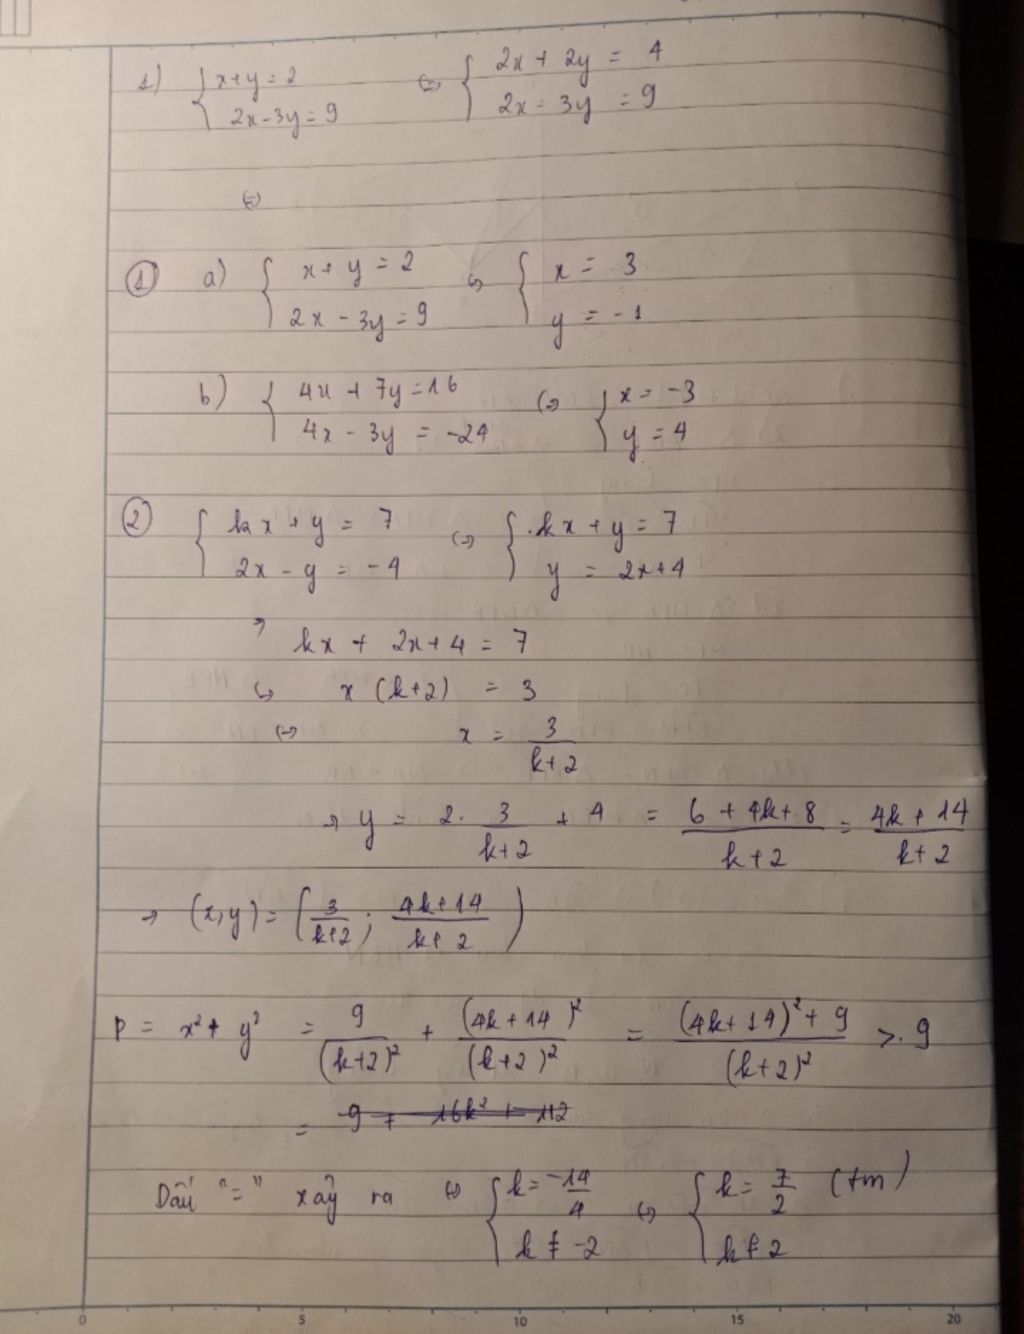 1) { x+y = 2 ⇔ { 2x + 2y = 4
2x-3y = 9 2x - 3y = 9
⇔
① a) { x + y = 2 ⇔ { x = 3
2x - 3y = 9 y = -1
b) { 4x + 7y = 16 ⇔ { x = -3
4x - 3y = -24 y = 4
② { kx + y = 7 ⇔ { kx + y = 7
2x - y = -4 y = 2x+4
→ kx + 2x+4 = 7
⇔ x (k+2) = 3
⇔ x = 3/(k+2)
→ y = 2. 3/(k+2) + 4 = (6 + 4k + 8)/(k+2) = (4k + 14)/(k+2)
→ (x,y) = (3/(k+2); (4k+14)/(k+2))
P = x² + y² = 9/(k+2)² + (4k+14)²/(k+2)² = ((4k+14)² + 9)/(k+2)² ≥ 9
= 9 + 16k² + 112
Dấu "=" xảy ra ⇔ { k = -14/4 ⇔ { k = 7/2 (tm)
k ≠ -2 k ≠ 2
0 5 10 15 20